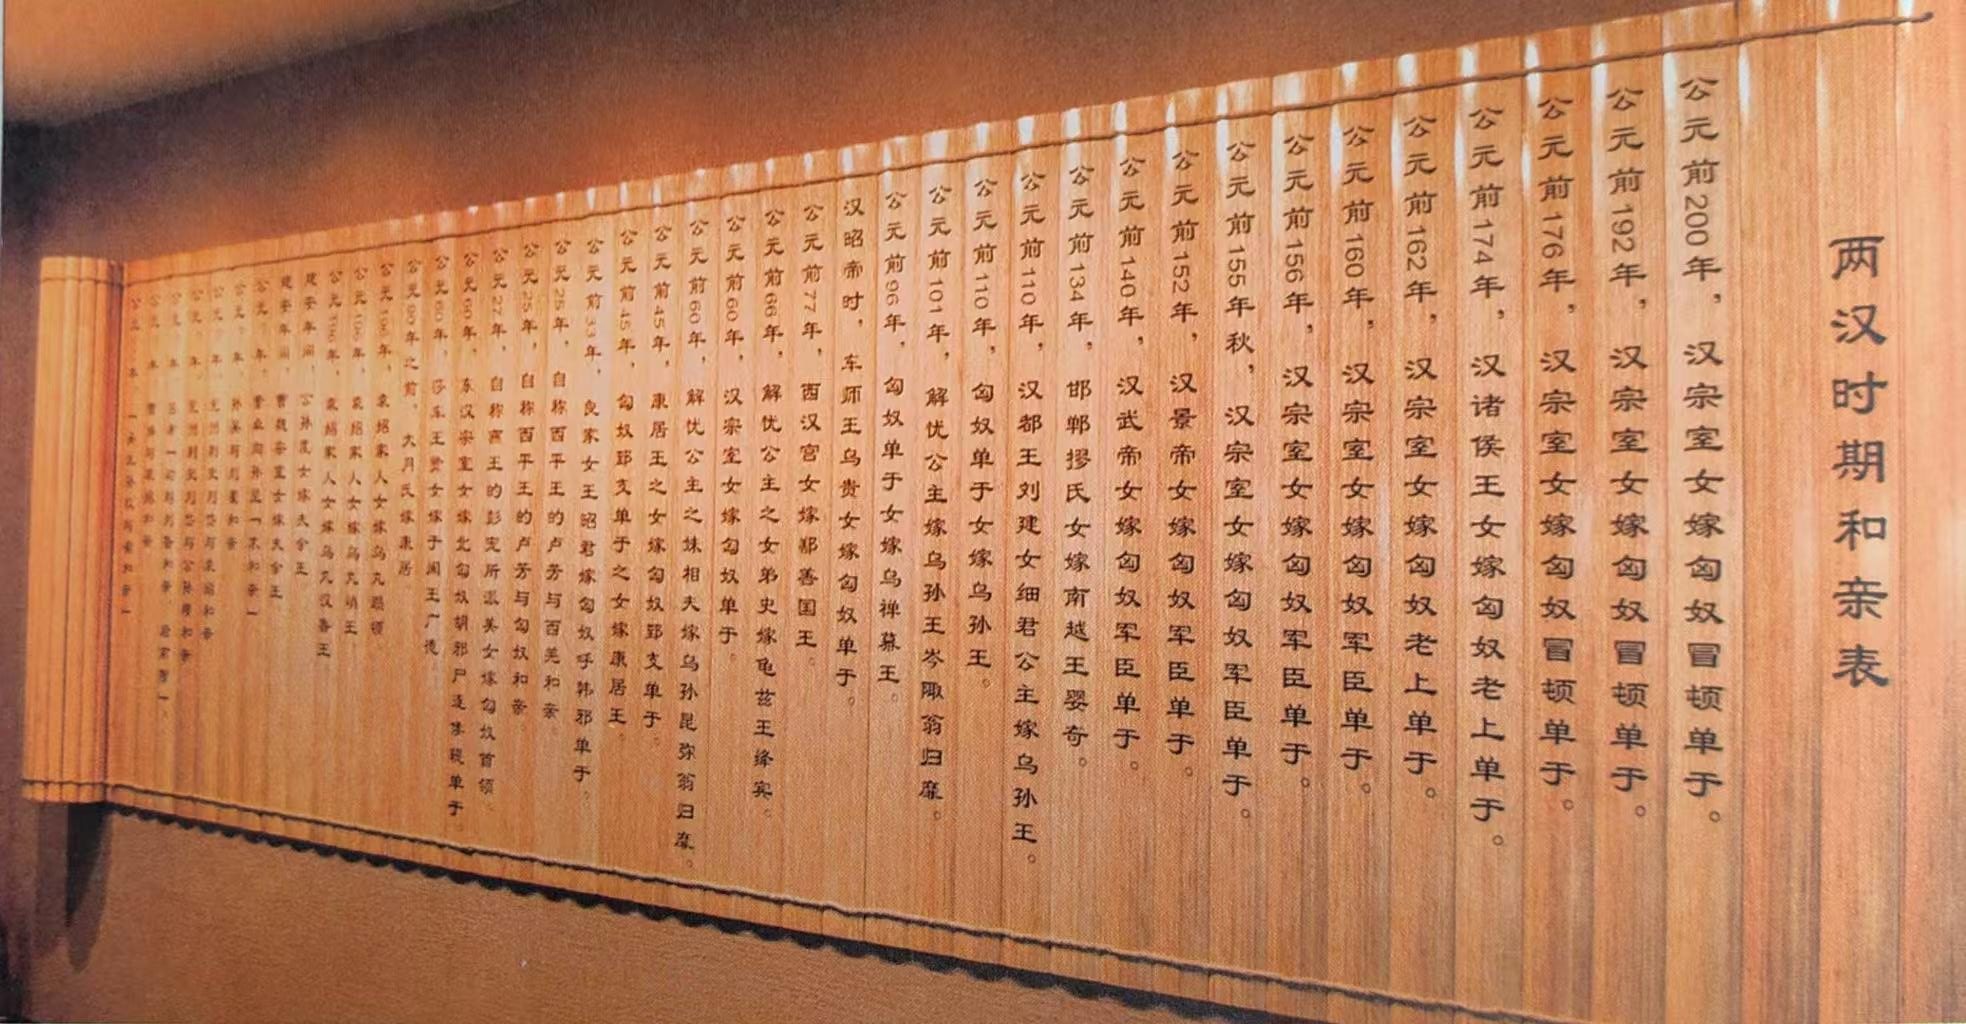 两汉时期和亲表
公元前200年，汉宗室女嫁匈奴冒顿单于。
公元前192年，汉宗室女嫁匈奴冒顿单于。
公元前176年，汉宗室女嫁匈奴冒顿单于。
公元前174年，汉诸侯王女嫁匈奴老上单于。
公元前162年，汉宗室女嫁匈奴老上单于。
公元前160年，汉宗室女嫁匈奴军臣单于。
公元前156年，汉宗室女嫁匈奴军臣单于。
公元前155年秋，汉宗室女嫁匈奴军臣单于。
公元前152年，汉景帝女嫁匈奴军臣单于。
公元前140年，汉武帝女嫁匈奴军臣单于。
公元前134年，邯郸摎氏女嫁南越王婴奇。
公元前110年，汉都王刘建女细君公主嫁乌孙王。
公元前110年，匈奴单于女嫁乌孙王。
公元前101年，解忧公主嫁乌孙王岑陬翁归靡。
公元前96年，匈奴单于女嫁乌禅幕王。
汉昭帝时，车师王乌贵女嫁匈奴单于。
公元前77年，西汉宫女嫁鄯善国王。
公元前66年，解忧公主之女弟史嫁龟兹王绛宾。
公元前60年，汉宗室女嫁匈奴单于。
公元前60年，解忧公主之妹相夫嫁乌孙昆弥翁归靡。
公元前45年，康居王之女嫁匈奴郅支单于。
公元前45年，匈奴郅支单于之女嫁康居王。
公元前33年，良家女王昭君嫁匈奴呼韩邪单于。
公元25年，自称西平王的卢芳与西羌和亲。
公元25年，自称西平王的卢芳与匈奴和亲。
公元27年，自称燕王的彭宠所派美女嫁匈奴首领。
公元60年，东汉宗室女嫁北匈奴胡邪尸逐侯鞮单于。
公元60年，莎车王贤女嫁于阗王广德。
公元90年之前，大月氏嫁康居
公元196年，袁绍家人女嫁乌丸蹋顿
公元196年，袁绍家人女嫁乌丸峭王
公元196年，袁绍家人女嫁乌丸汉鲁王
建安年间，公孙度女嫁夫余王
建安年间，曹魏宗室女嫁夫余王